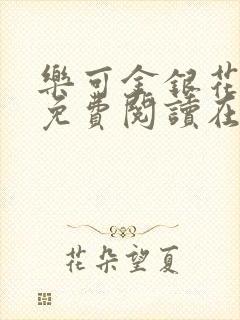 樂可金銀花
免費閱讀在
花朵望夏